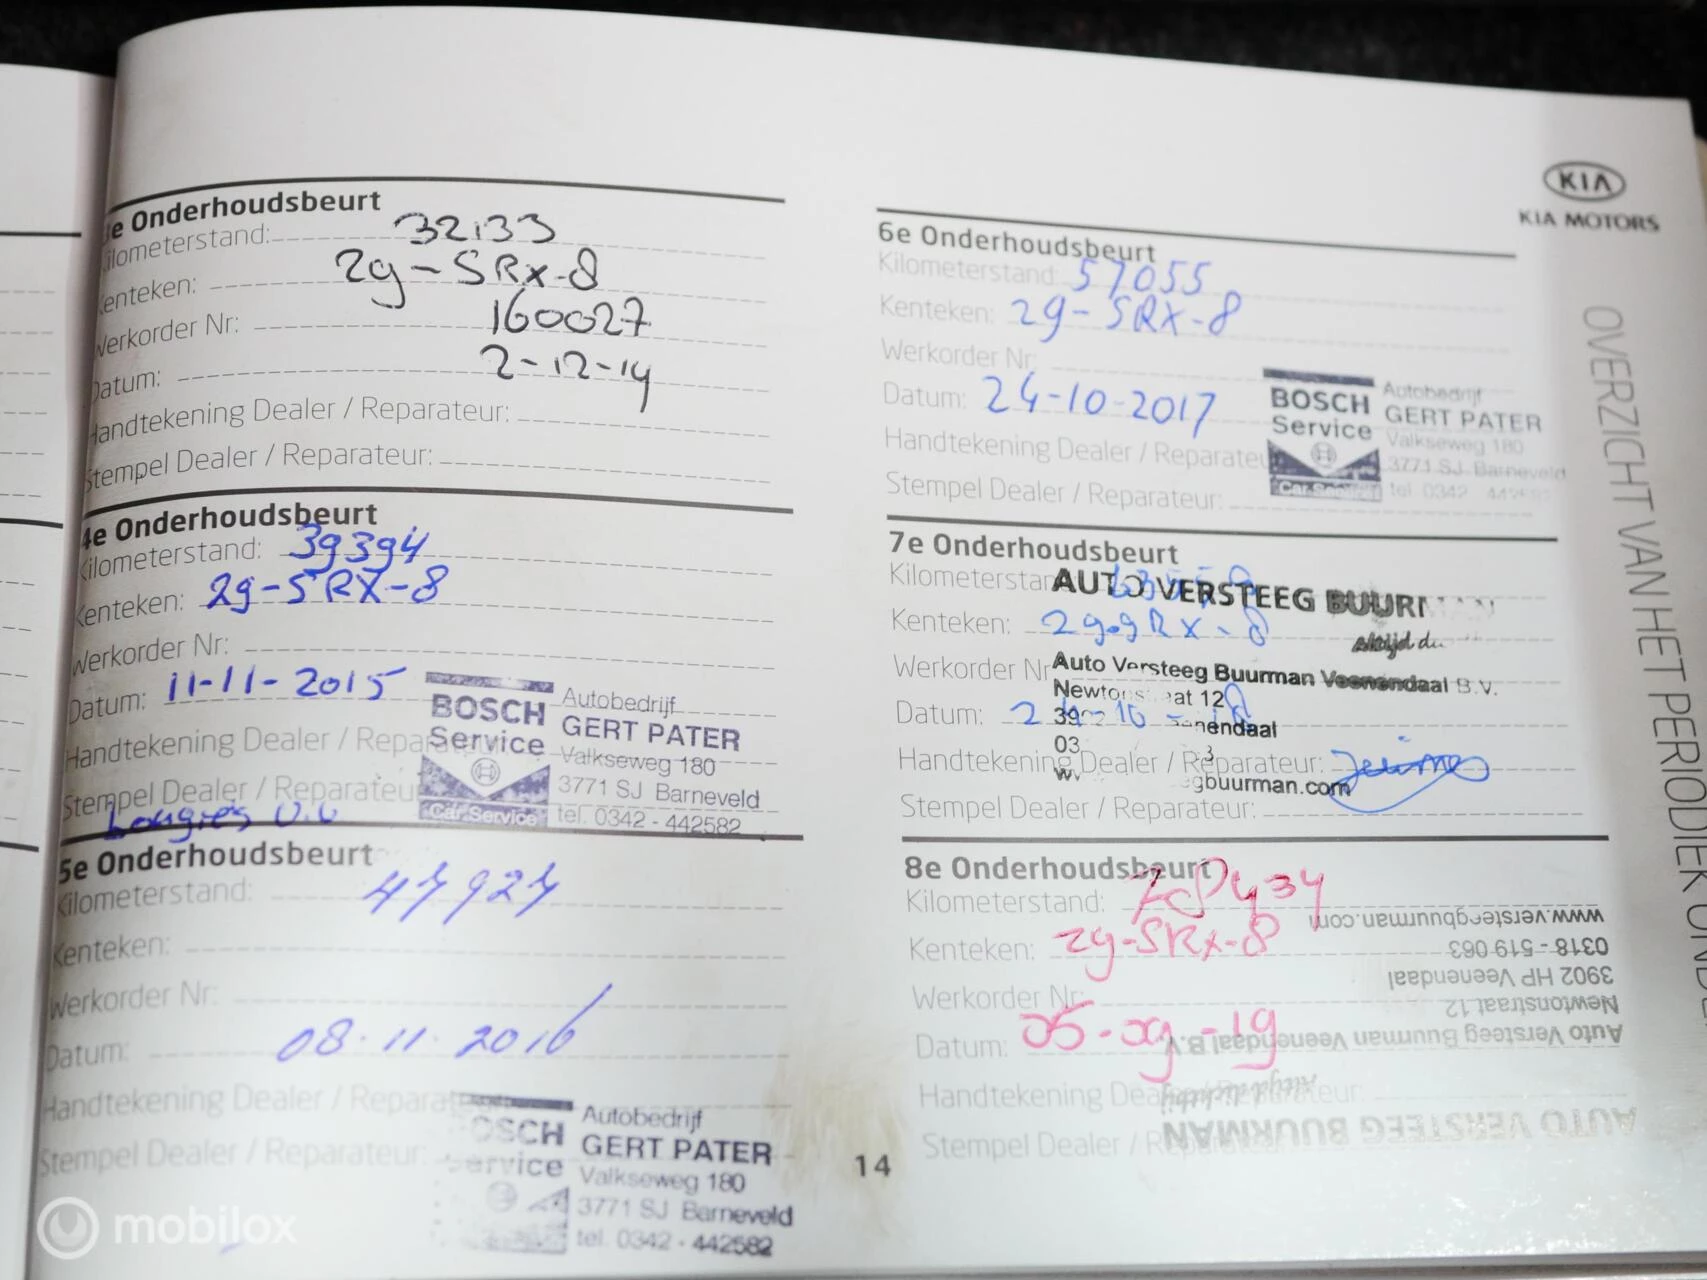 e Onderhoudsbeurt
Kilometerstand: 32133
Kenteken: 29-SRX-8
Werkorder Nr: 160027
Datum: 2-12-14
Handtekening Dealer / Reparateur:
Stempel Dealer / Reparateur:
4e Onderhoudsbeurt
Kilometerstand: 39394
Kenteken: 29-SRX-8
Werkorder Nr:
Datum: 11-11-2015
Handtekening Dealer / Reparateur
Stempel Dealer / Reparateur
BOSCH
Service
Car Service
Autobedrijf
GERT PATER
Valkseweg 180
3771 SJ Barneveld
tel. 0342 - 442582
5e Onderhoudsbeurt
Kilometerstand: 47927
Kenteken:
Werkorder Nr:
Datum: 08.11.2016
Handtekening Dealer / Reparat
Stempel Dealer / Reparateur:
OSCH
Service
Autobedrijf
GERT PATER
Valkseweg 180
3771 SJ Barneveld
tel. 0342 - 442582
KIA
KIA MOTORS
6e Onderhoudsbeurt
Kilometerstand: 57055
Kenteken: 29-SRX-8
Werkorder Nr:
Datum: 24-10-2017
Handtekening Dealer / Reparateu
Stempel Dealer / Reparateur:
BOSCH
Service
Car Service
Autobedrijf
GERT PATER
Valkseweg 180
3771 SJ Barneveld
tel 0342 442582
7e Onderhoudsbeurt
Kilometerstan
AUTO VERSTEEG BUURMAN
Kenteken: 29-SRX-8
Werkorder Nr
Auto Versteeg Buurman Veenendaal B.V.
Datum:
Handtekening Dealer / Reparateur:
gbuurman.com
Stempel Dealer / Reparateur:
8e Onderhoudsbeurt
Kilometerstand:
Kenteken: 29-SRX-8
Werkorder Nr:
Datum: 05-09-19
Handtekening Dealer / Reparateur:
Stempel Dealer / R
AUTO VERSTEEG BUURMAN
Auto Versteeg Buurman Veenendaal B.V.
Newtonstraat 12
3902 HP Veenendaal
0318 - 519 063
www.versteegbuurman.com
OVERZICHT VAN HET PERIODIEK OND
14
mobilox